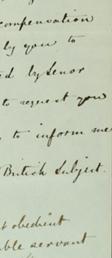 compensation
by you to
ed by Senor
to request you
to inform me
British Subject.
t obedient
ble servant